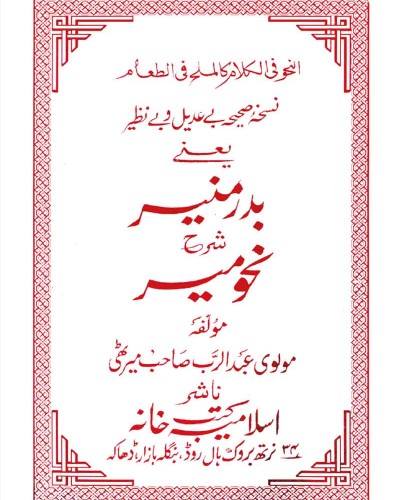 النحو فی الکلام کالملح فی الطعام
نسخۂ صحیحہ بے عدیل و بے نظیر
یعنے
بدر منیر
شرح
نحو میر
مؤلفہ
مولوی عبدالرب صاحب میرٹھی
ناشر
اسلامیہ کتب خانہ
۳۴ نرتھ بروک ہال روڈ، بنگلہ بازار، ڈھاکہ